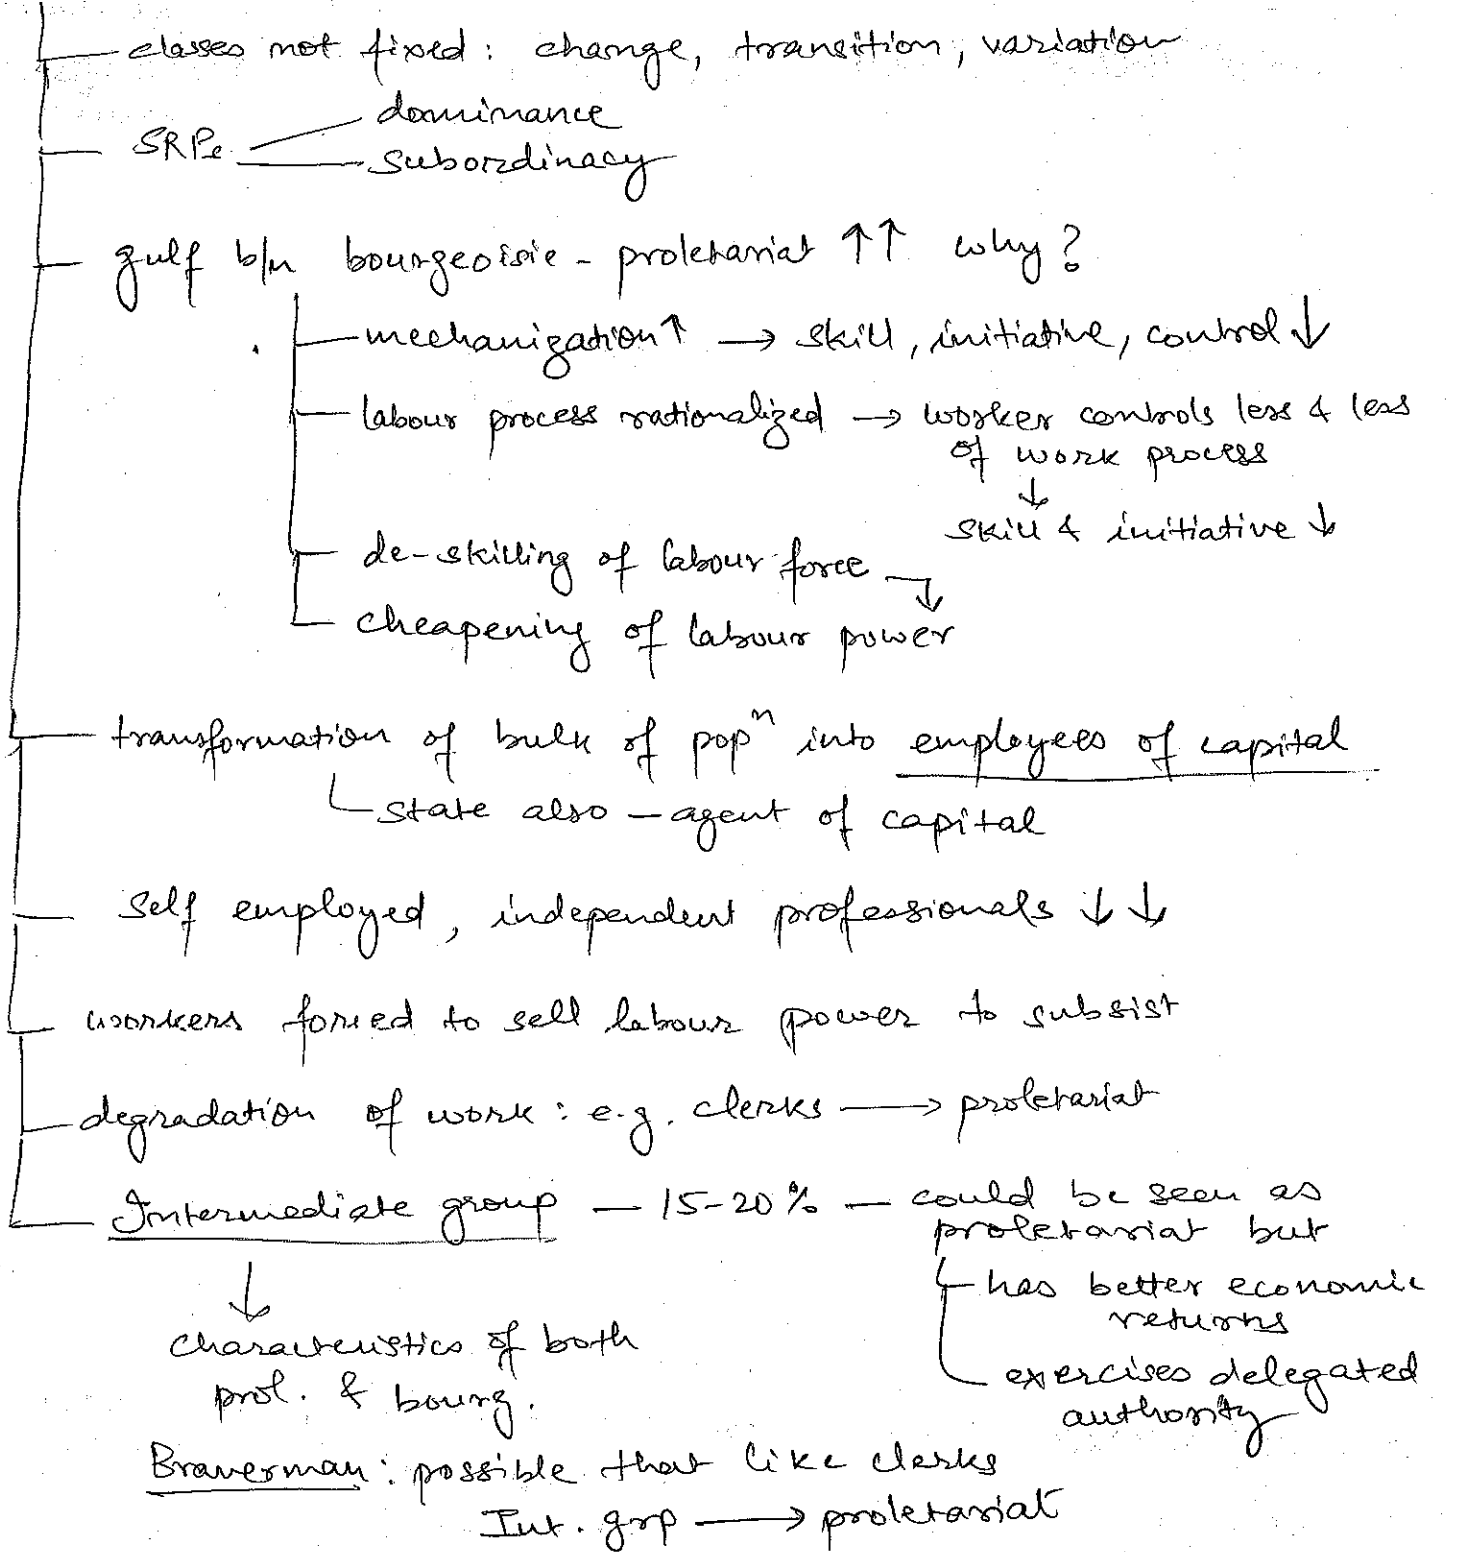 classes not fixed : change, transition, variation
dominance
SRPe
subordinacy
gulf b/n bourgeoisie - proletariat ↑↑ why?
mechanization ↑ → skill, initiative, control ↓
labour process rationalized → worker controls less & less
of work process
↓
skill & initiative ↓
de-skilling of labour force
↓
cheapening of labour power
transformation of bulk of popⁿ into employees of capital
state also – agent of capital
Self employed, independent professionals ↓ ↓
workers forced to sell labour power to subsist
degradation of work : e.g. clerks → proletariat
Intermediate group – 15-20% – could be seen as
proletariat but
has better economic
returns
exercises delegated
authority
↓
characteristics of both
prol. & bourg.
Braverman : possible that like clerks
Int. grp → proletariat